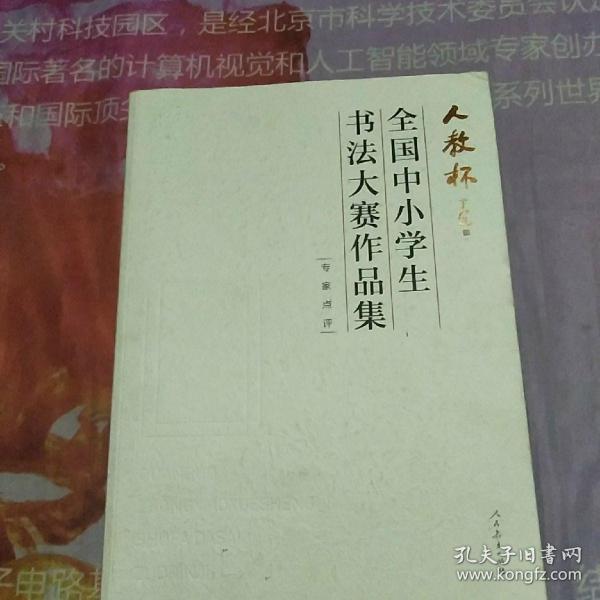 关村科技园区，是经北京市科学技术委员会认定
国际著名的计算机视觉和人工智能领域专家创办
和国际顶尖
系列世界
人教杯
全国中小学生
书法大赛作品集
专家点评
人民教育出版社
子电路
孔夫子旧书网
www.kongfz.com